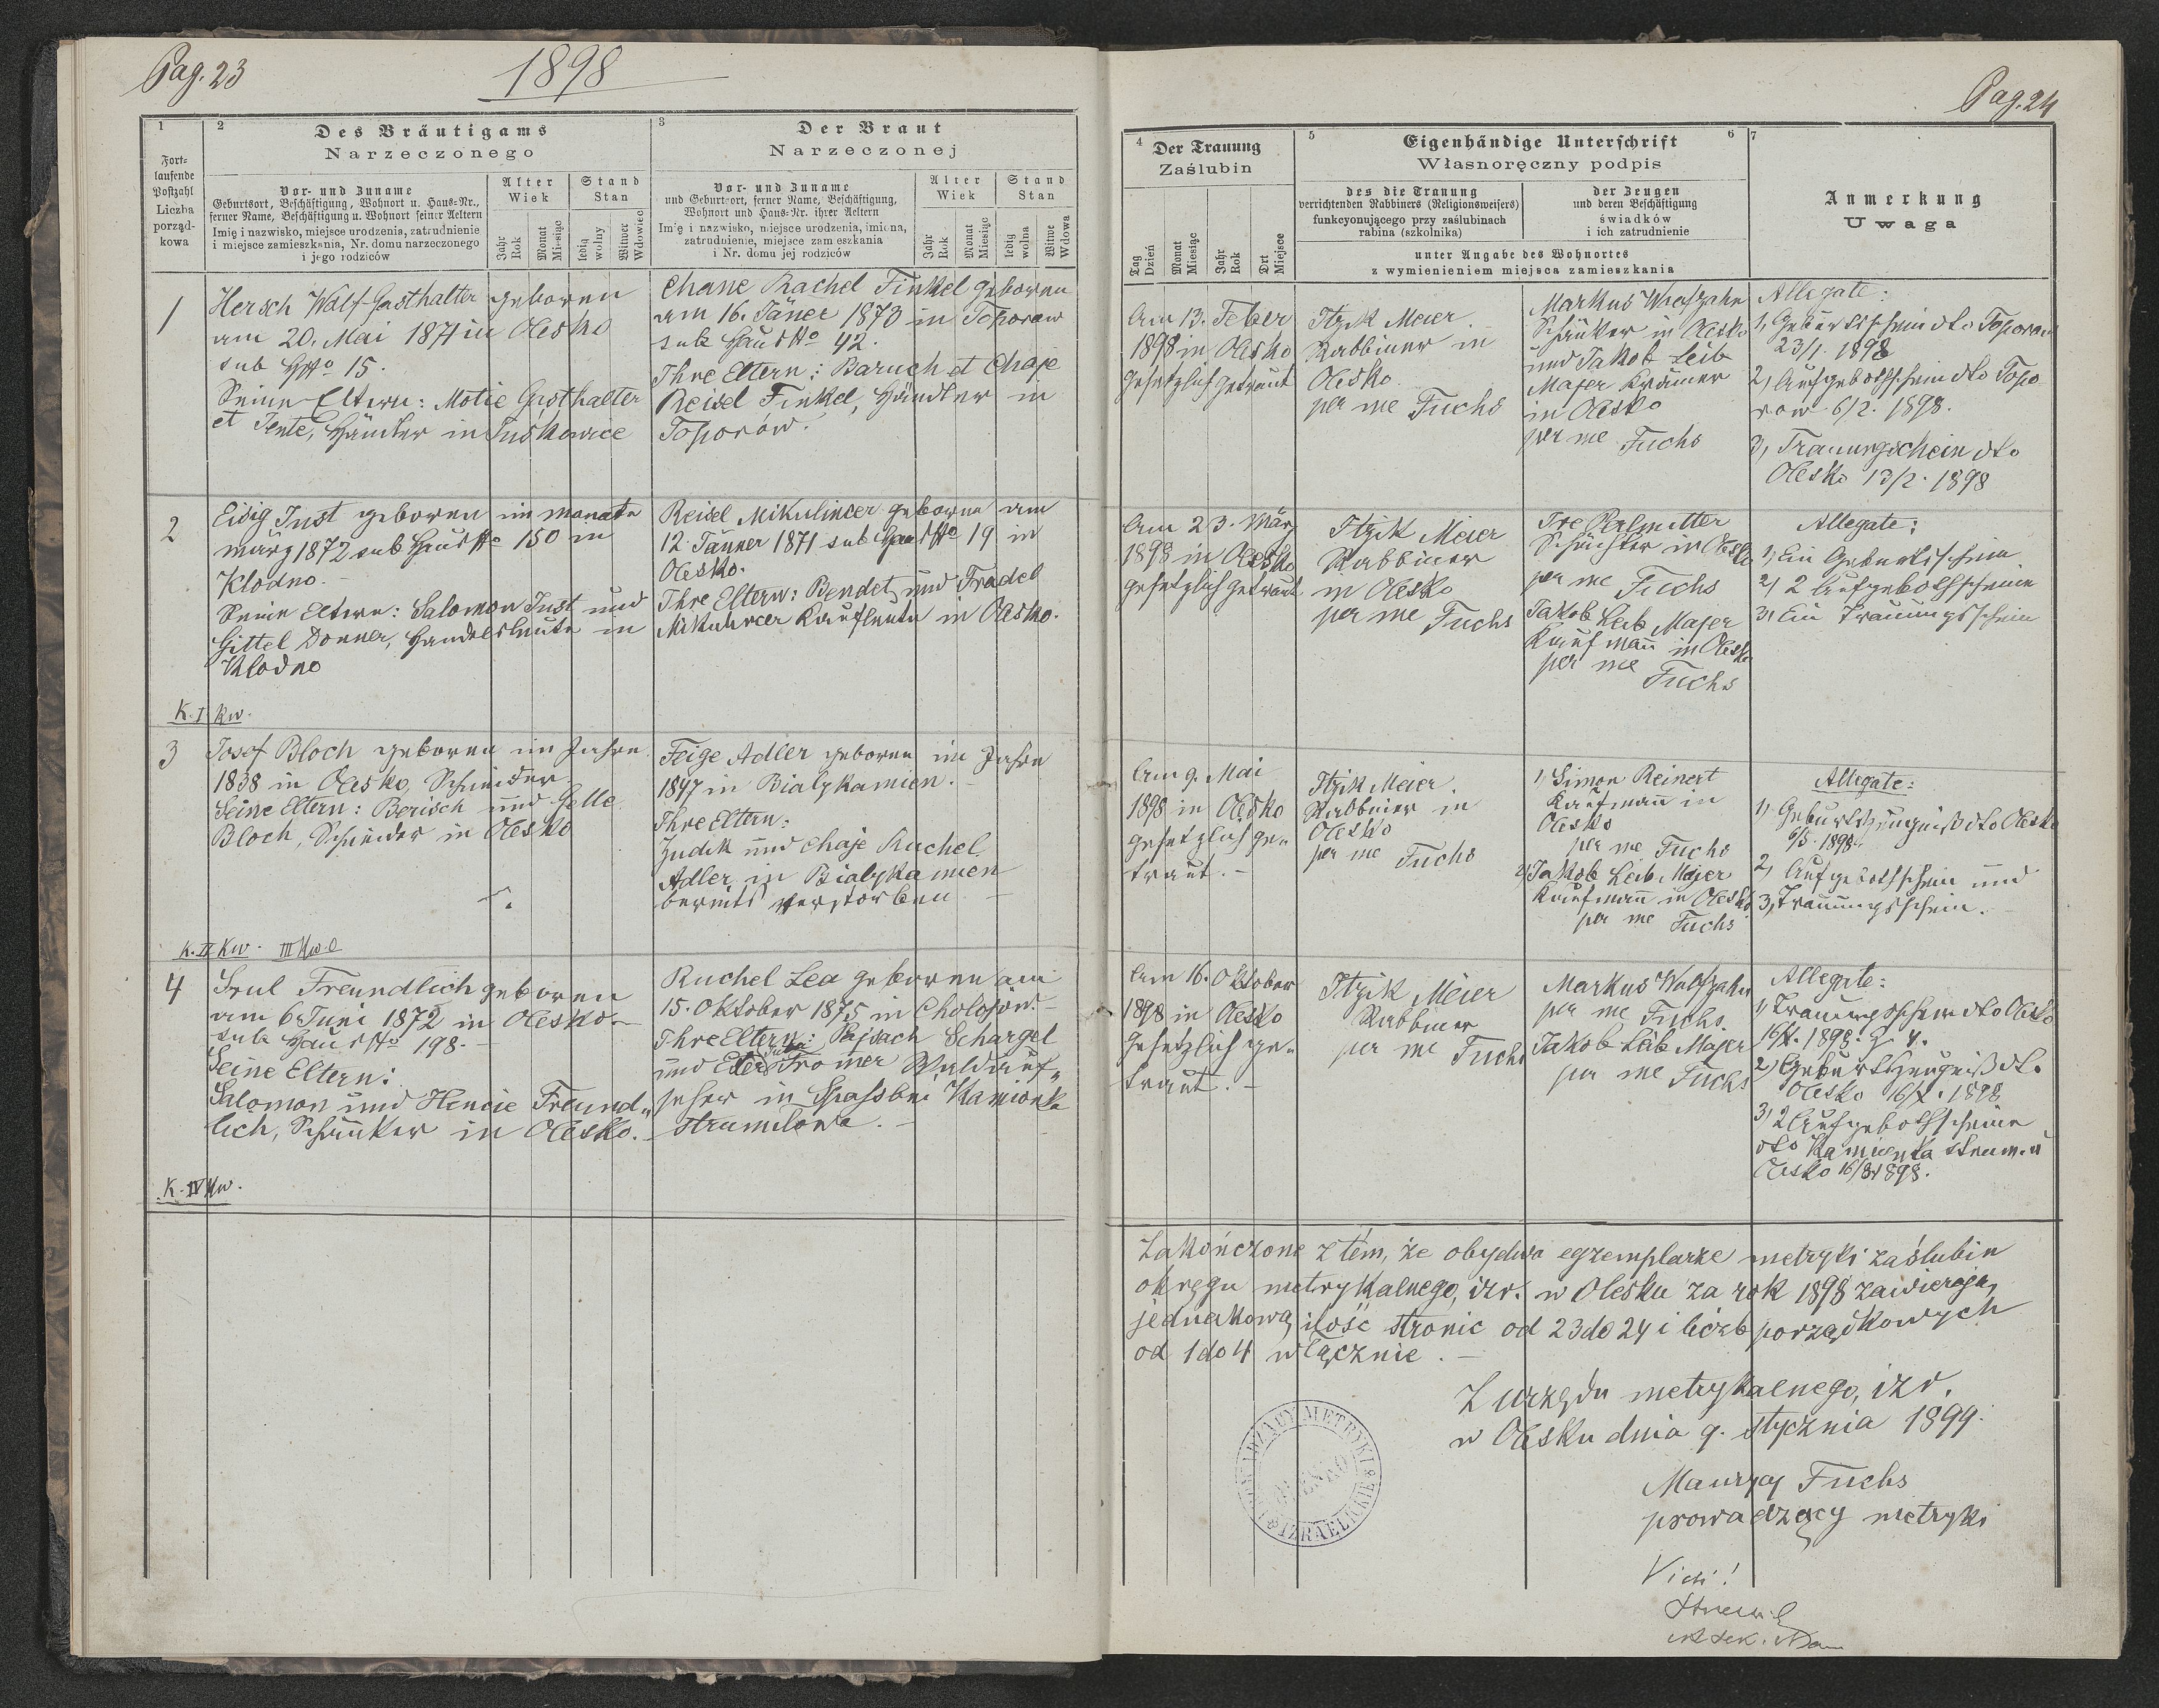 Pag. 23
1898
1
2
Des Bräutigams
Narzeczonego
3
Der Braut
Narzeczonej
Fort-
laufende
Postzahl
Liczba
porząd-
kowa
Vor- und Zuname
Geburtsort, Beschäftigung, Wohnort u. Haus-Nr.,
ferner Name, Beschäftigung u. Wohnort seiner Aeltern
Imię i nazwisko, miejsce urodzenia, zatrudnienie
i miejsce zamieszkania, Nr. domu narzeczonego
i jego rodziców
Alter
Wiek
Stand
Stan
Jahr
Rok
Monat
Miesiąc
ledig
wolny
Witwer
Wdowiec
Vor- und Zuname
und Geburtsort, ferner Name, Beschäftigung,
Wohnort und Haus-Nr. ihrer Aeltern
Imię i nazwisko, miejsce urodzenia, imiona,
zatrudnienie, miejsce zamieszkania
i Nr. domu jej rodziców
Alter
Wiek
Stand
Stan
Jahr
Rok
Monat
Miesiąc
ledig
wolna
Witwe
Wdowa
1
Hersch Wolf Gasthalter geboren
am 20. Mai 1871 in Olesko
sub HNo 15.
Seine Eltern: Motie Gasthalter
et Jente, Händler in Juśkowice
Chane Rachel Finkel geboren
am 16. Jäner 1873 in Toporow
sub Haus No 42.
Ihre Eltern: Baruch et Chaje
Reisel Finkel, Händler in
Toporów.
2
Eisig Just geboren im Monate
März 1872 sub Haus No 150 in
Klodno. -
Seine Eltern: Salomon Just und
Gittel Donner, Handelsleute in
Klodno
Reisel Mikulincer geboren am
12. Jänner 1871 sub Haus No 19 in
Olesko.
Ihre Eltern: Bendet und Fradel
Mikulincer Kaufleute in Olesko.
K. I Kw.
3
Josef Bloch geboren im Jahre
1838 in Olesko, Schneider
Seine Eltern: Berisch und Golle
Bloch, Schneider in Olesko
Feige Adler geboren im Jahre
1847 in Bialykamien. -
Ihre Eltern:
Judik und Chaje Ruchel
Adler in Bialykamien
bereits verstorben -
K. II Kw. III Kw.
4
Srul Freundlich geboren
am 6 Juni 1872 in Olesko. -
sub Haus No 198. -
Seine Eltern:
Salomon und Hencie Freund-
lich, Schänker in Olesko. -
Ruchel Lea geboren am
15. Oktober 1875 in Cholojów. -
Ihre Eltern: Pajsach Schargel
und Tromer Waldauf-
seher in Spass bei Kamionka
strumilowa. -
K. IV Kw.
Pag. 24
4
Der Trauung
Zaślubin
5
Eigenhändige Unterschrift
Własnoręczny podpis
6
7
des die Trauung
verrichtenden Rabbiners (Religionsweisers)
funkcyonującego przy zaślubinach
rabina (szkolnika)
der Zeugen
und deren Beschäftigung
świadków
i ich zatrudnienie
unter Angabe des Wohnortes
z wymienieniem miejsca zamieszkania
Tag
Dzień
Monat
Miesiąc
Jahr
Rok
Ort
Miejsce
Anmerkung
Uwaga
Am 13. Feber
1898 in Olesko
gesetzlich getraut
Itzik Meier. -
Rabbiner in
Olesko
per me Fuchs
Markus Wolfzahn
Schänker in Olesko
und Jakob Leib
Majer Krämer
in Olesko
per me Fuchs
Allegate:
1, Geburtsschein dto Toporow
23/1. 1898
2, Aufgebothschein dto Topo
row 6/2. 1898.
3, Trauungschein dto
Olesko 13/2. 1898
Am 23. März
1898 in Olesko
gesetzlich getraut
Itzik Meier
Rabbiner
in Olesko
per me Fuchs
Ire Perlmutter
Schächter in Olesko
per me Fuchs
Jakob Leib Majer
Kaufmann in Olesko
per me
Fuchs
Allegate:
1, Ein Geburtsschein
2, 2 Aufgebothscheine
3, Ein Trauungsschein
Am 9. Mai
1898 in Olesko
gesetzlich ge-
traut. -
Itzik Meier.
Rabbiner in
Olesko
per me Fuchs
1, Simon Reinert
Kaufmann in
Olesko
per me Fuchs
2, Jakob Leib Majer
Kaufmann in Olesko
per me Fuchs
Allegate:
1, Geburtszeugniß dto Olesko
6/5. 1898.
2, Aufgebothschein und
3, Trauungsschein. -
Am 16. Oktober
1898 in Olesko
gesetzlich ge-
traut. -
Itzik Meier
Rabbiner
per me Fuchs
Markus Wolfzahn
per me Fuchs.
Jakob Leib Majer
per me Fuchs
Allegate:
1, Trauungsschein dto Olesko
16/X. 1898. 4.
2, Geburtszeugniß dto
Olesko 16/X. 1898
3, 2 Aufgebothscheine
dto Kamionka strum. u
Olesko 16/8 1898.
Zakończone z tém, że obydwa egzemplarze metryki zaślubin
okręgu metrykalnego, izr. w Olesku za rok 1898 zawierają
jednakową ilość stronic od 23 do 24 i liczb porządkowych
od 1 do 4 włącznie. -
Z urzędu metrykalnego, izr.
w Olesku dnia 9. stycznia 1899.
Maurycy Fuchs
prowadzący metryki
PROWADZĄCY METRYKI
IZRAELICKIE
Vidi!